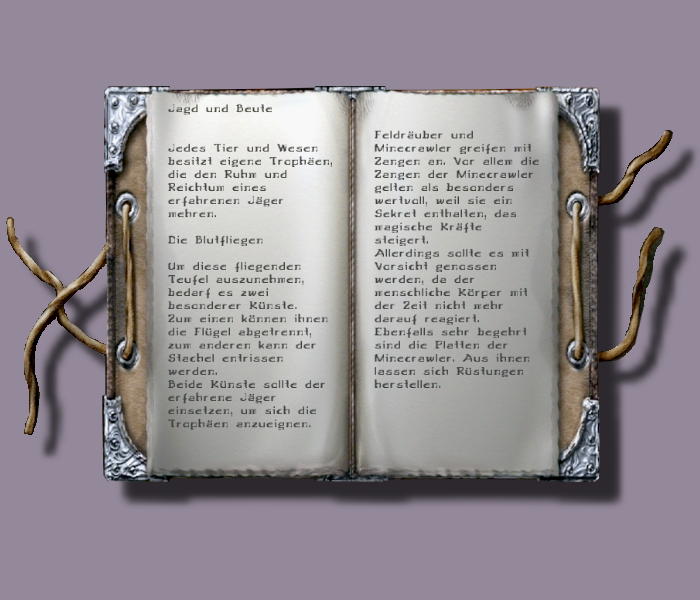 Jagd und Beute
Jedes Tier und Wesen
besitzt eigene Trophäen,
die den Ruhm und
Reichtum eines
erfahrenen Jäger
mehren.
Die Blutfliegen
Um diese fliegenden
Teufel auszunehmen,
bedarf es zwei
besonderer Künste.
Zum einen können ihnen
die Flügel abgetrennt,
zum anderen kann der
Stachel entrissen
werden.
Beide Künste sollte der
erfahrene Jäger
einsetzen, um sich die
Trophäen anzueignen.
Feldräuber und
Minecrawler greifen mit
Zangen an. Vor allem die
Zangen der Minecrawler
gelten als besonders
wertvoll, weil sie ein
Sekret enthalten, das
magische Kräfte
steigert.
Allerdings sollte es mit
Vorsicht genossen
werden, da der
menschliche Körper mit
der Zeit nicht mehr
darauf reagiert.
Ebenfalls sehr begehrt
sind die Platten der
Minecrawler. Aus ihnen
lassen sich Rüstungen
herstellen.